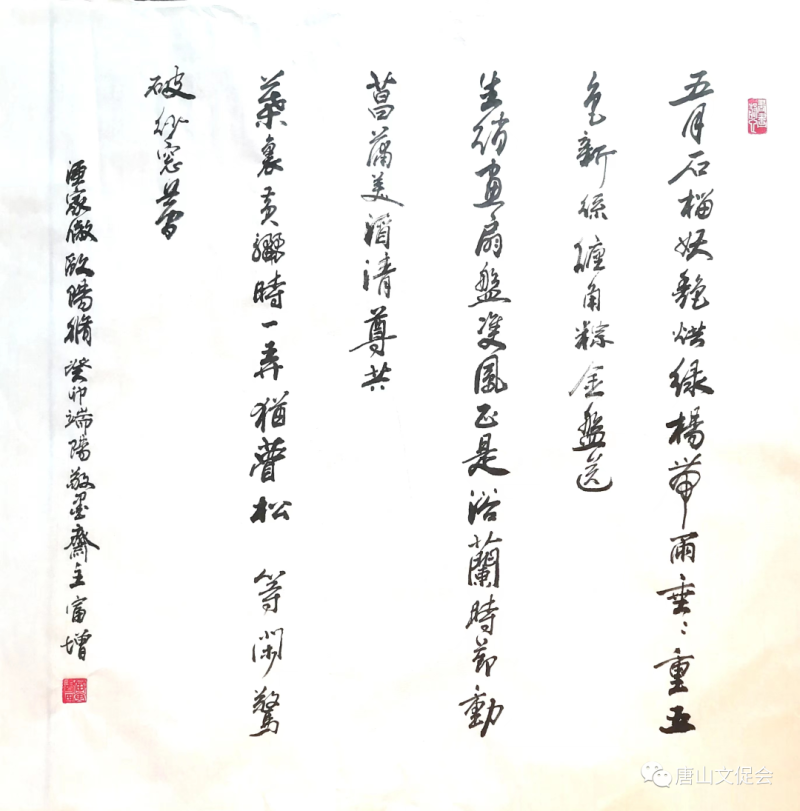 五月石榴妖艷烘绿楊帶雨垂〻重五
色新絲纏角粽金盤送
生綃畫扇盤雙鳳正是浴蘭時節動
菖蒲美酒清尊共
葉裏黄鸝時一弄猶瞢松 等闲驚
破紗窓夢
漁家傲欧陽脩 癸卯端陽敬墨齋主富增
唐山文促会